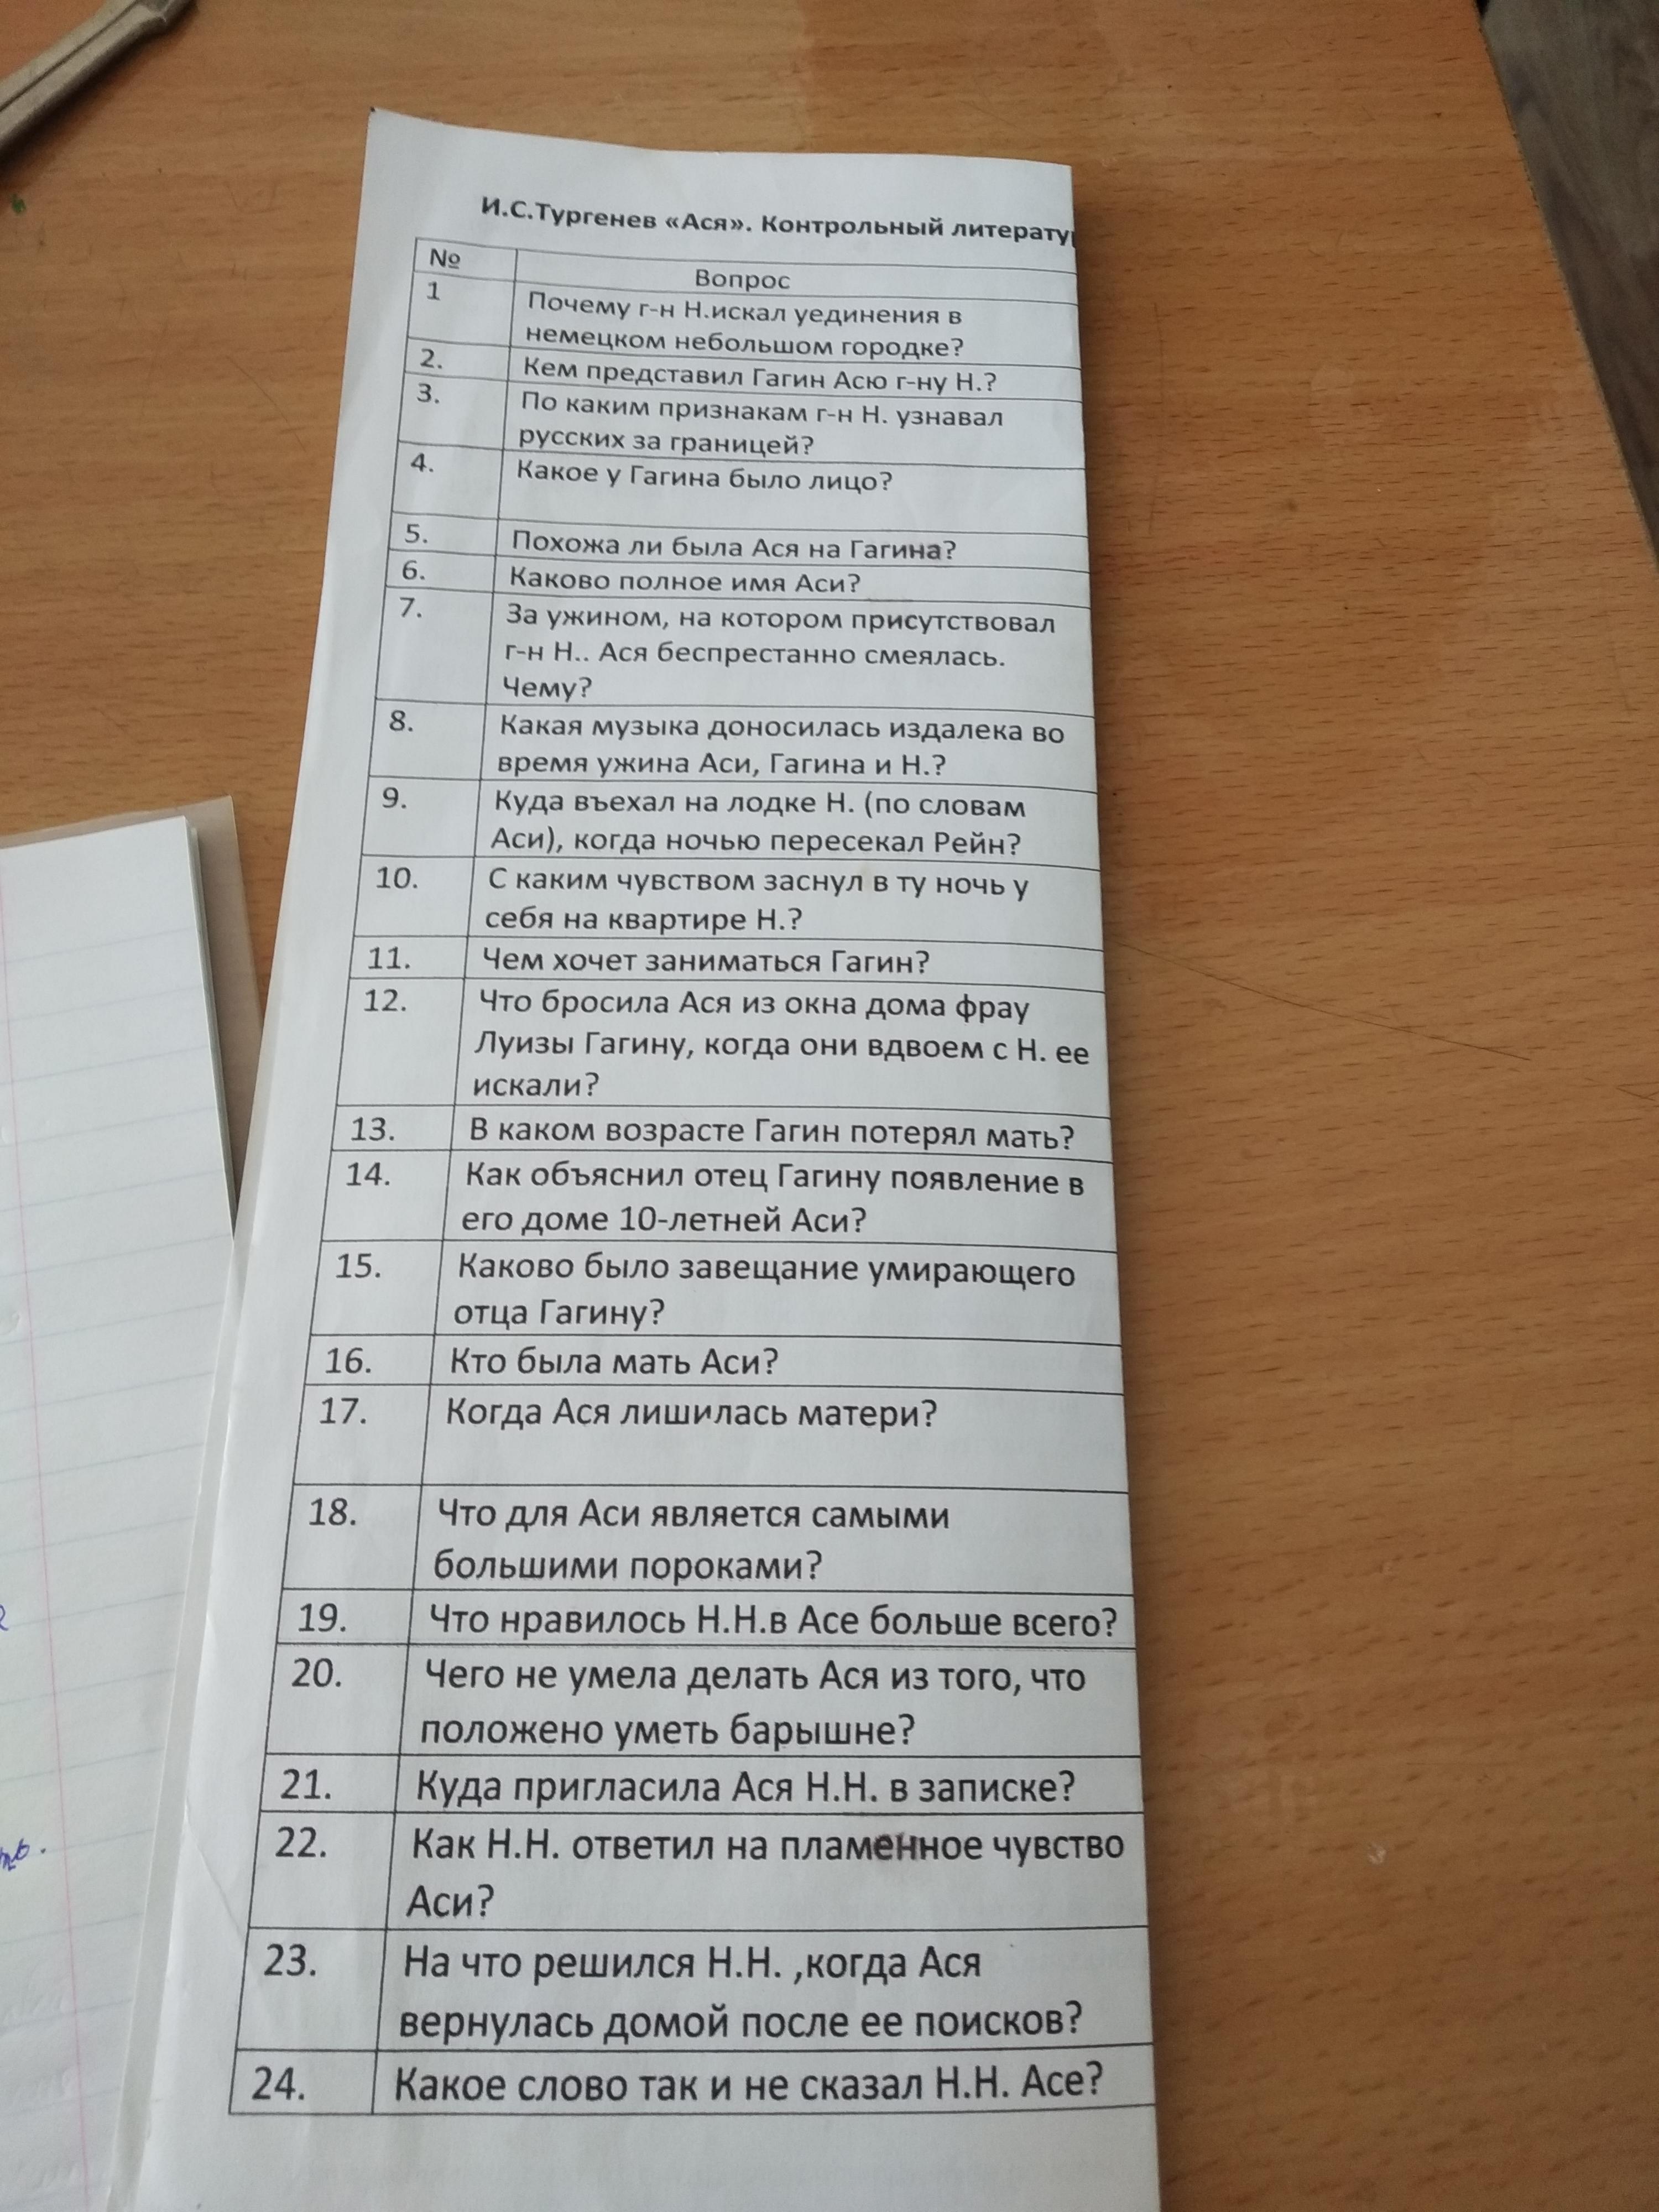 И.С.Тургенев «Ася». Контрольный
№ Вопрос
1 Почему г-н Н.искал уединения в
немецком небольшом городке?
2. Кем представил Гагин Асю г-ну Н.?
3. По каким признакам г-н Н. узнавал
русских за границей?
4. Какое у Гагина было лицо?
5. Похожа ли была Ася на Гагина?
6. Каково полное имя Аси?
7. За ужином, на котором присутствовал
г-н Н.. Ася беспрестанно смеялась.
Чему?
8. Какая музыка доносилась издалека во
время ужина Аси, Гагина и Н.?
9. Куда въехал на лодке Н. (по словам
Аси), когда ночью пересекал Рейн?
10. С каким чувством заснул в ту ночь у
себя на квартире Н.?
11. Чем хочет заниматься Гагин?
12. Что бросила Ася из окна дома фрау
Луизы Гагину, когда они вдвоем с Н. ее
искали?
13. В каком возрасте Гагин потерял мать?
14. Как объяснил отец Гагину появление в
его доме 10-летней Аси?
15. Каково было завещание умирающего
отца Гагину?
16. Кто была мать Аси?
17. Когда Ася лишилась матери?
18. Что для Аси является самыми
большими пороками?
19. Что нравилось Н.Н.в Асе больше всего?
20. Чего не умела делать Ася из того, что
положено уметь барышне?
21. Куда пригласила Ася Н.Н. в записке?
22. Как Н.Н. ответил на пламенное чувство
Аси?
23. На что решился Н.Н. ,когда Ася
вернулась домой после ее поисков?
24. Какое слово так и не сказал Н.Н. Асе?